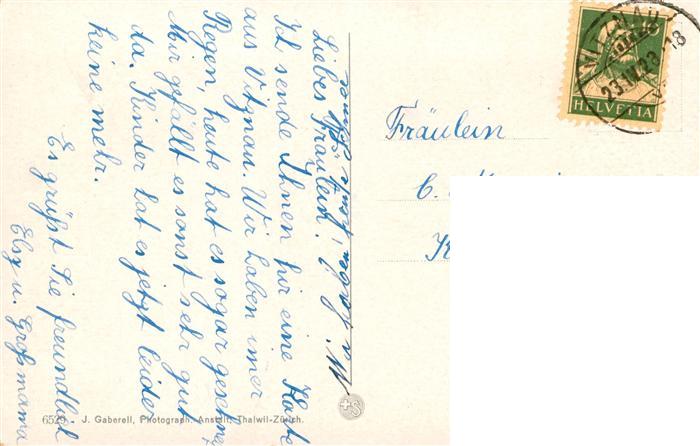 Liebes Fräulein!
Ich sende Ihnen hir eine Karte
aus Vitznau. Wir haben imer
Regen, heute hat es sogar geschneit.
Mir gefällt es sonst sehr gut
da. Kinder hat es jetzt leider
keine mehr.
Es grüßt Sie freundlich
Elsy u. Großmama
Fräulein
C.
K
VITZNAU
23.IV.28-18
HELVETIA
6529 J. Gaberell, Photograph. Anstalt, Thalwil-Zürich.